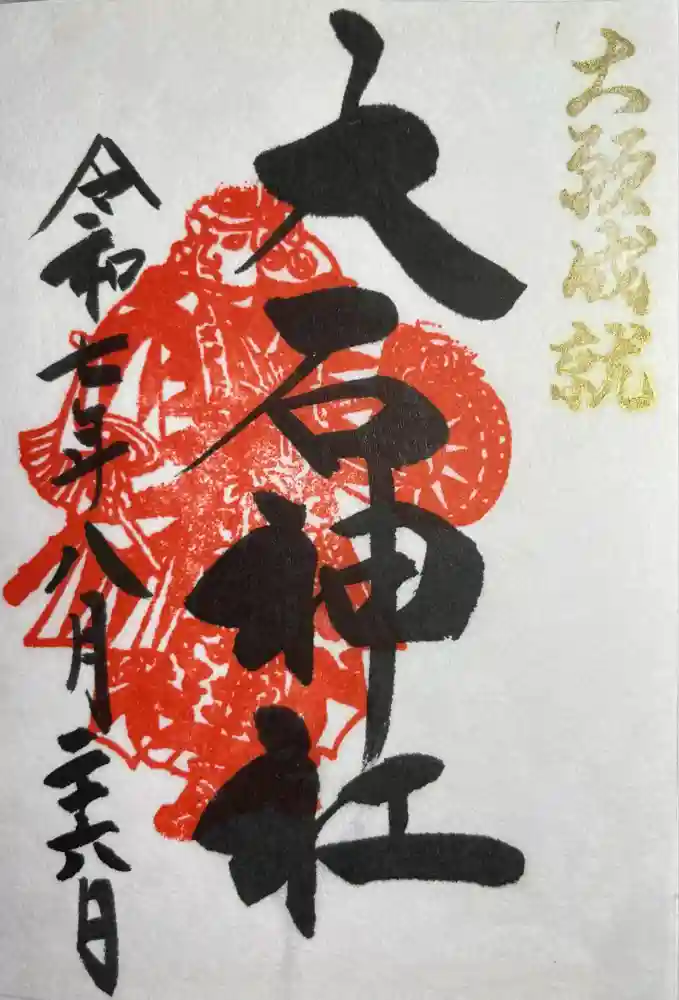 大願成就
大石神社
令和七年八月二十六日